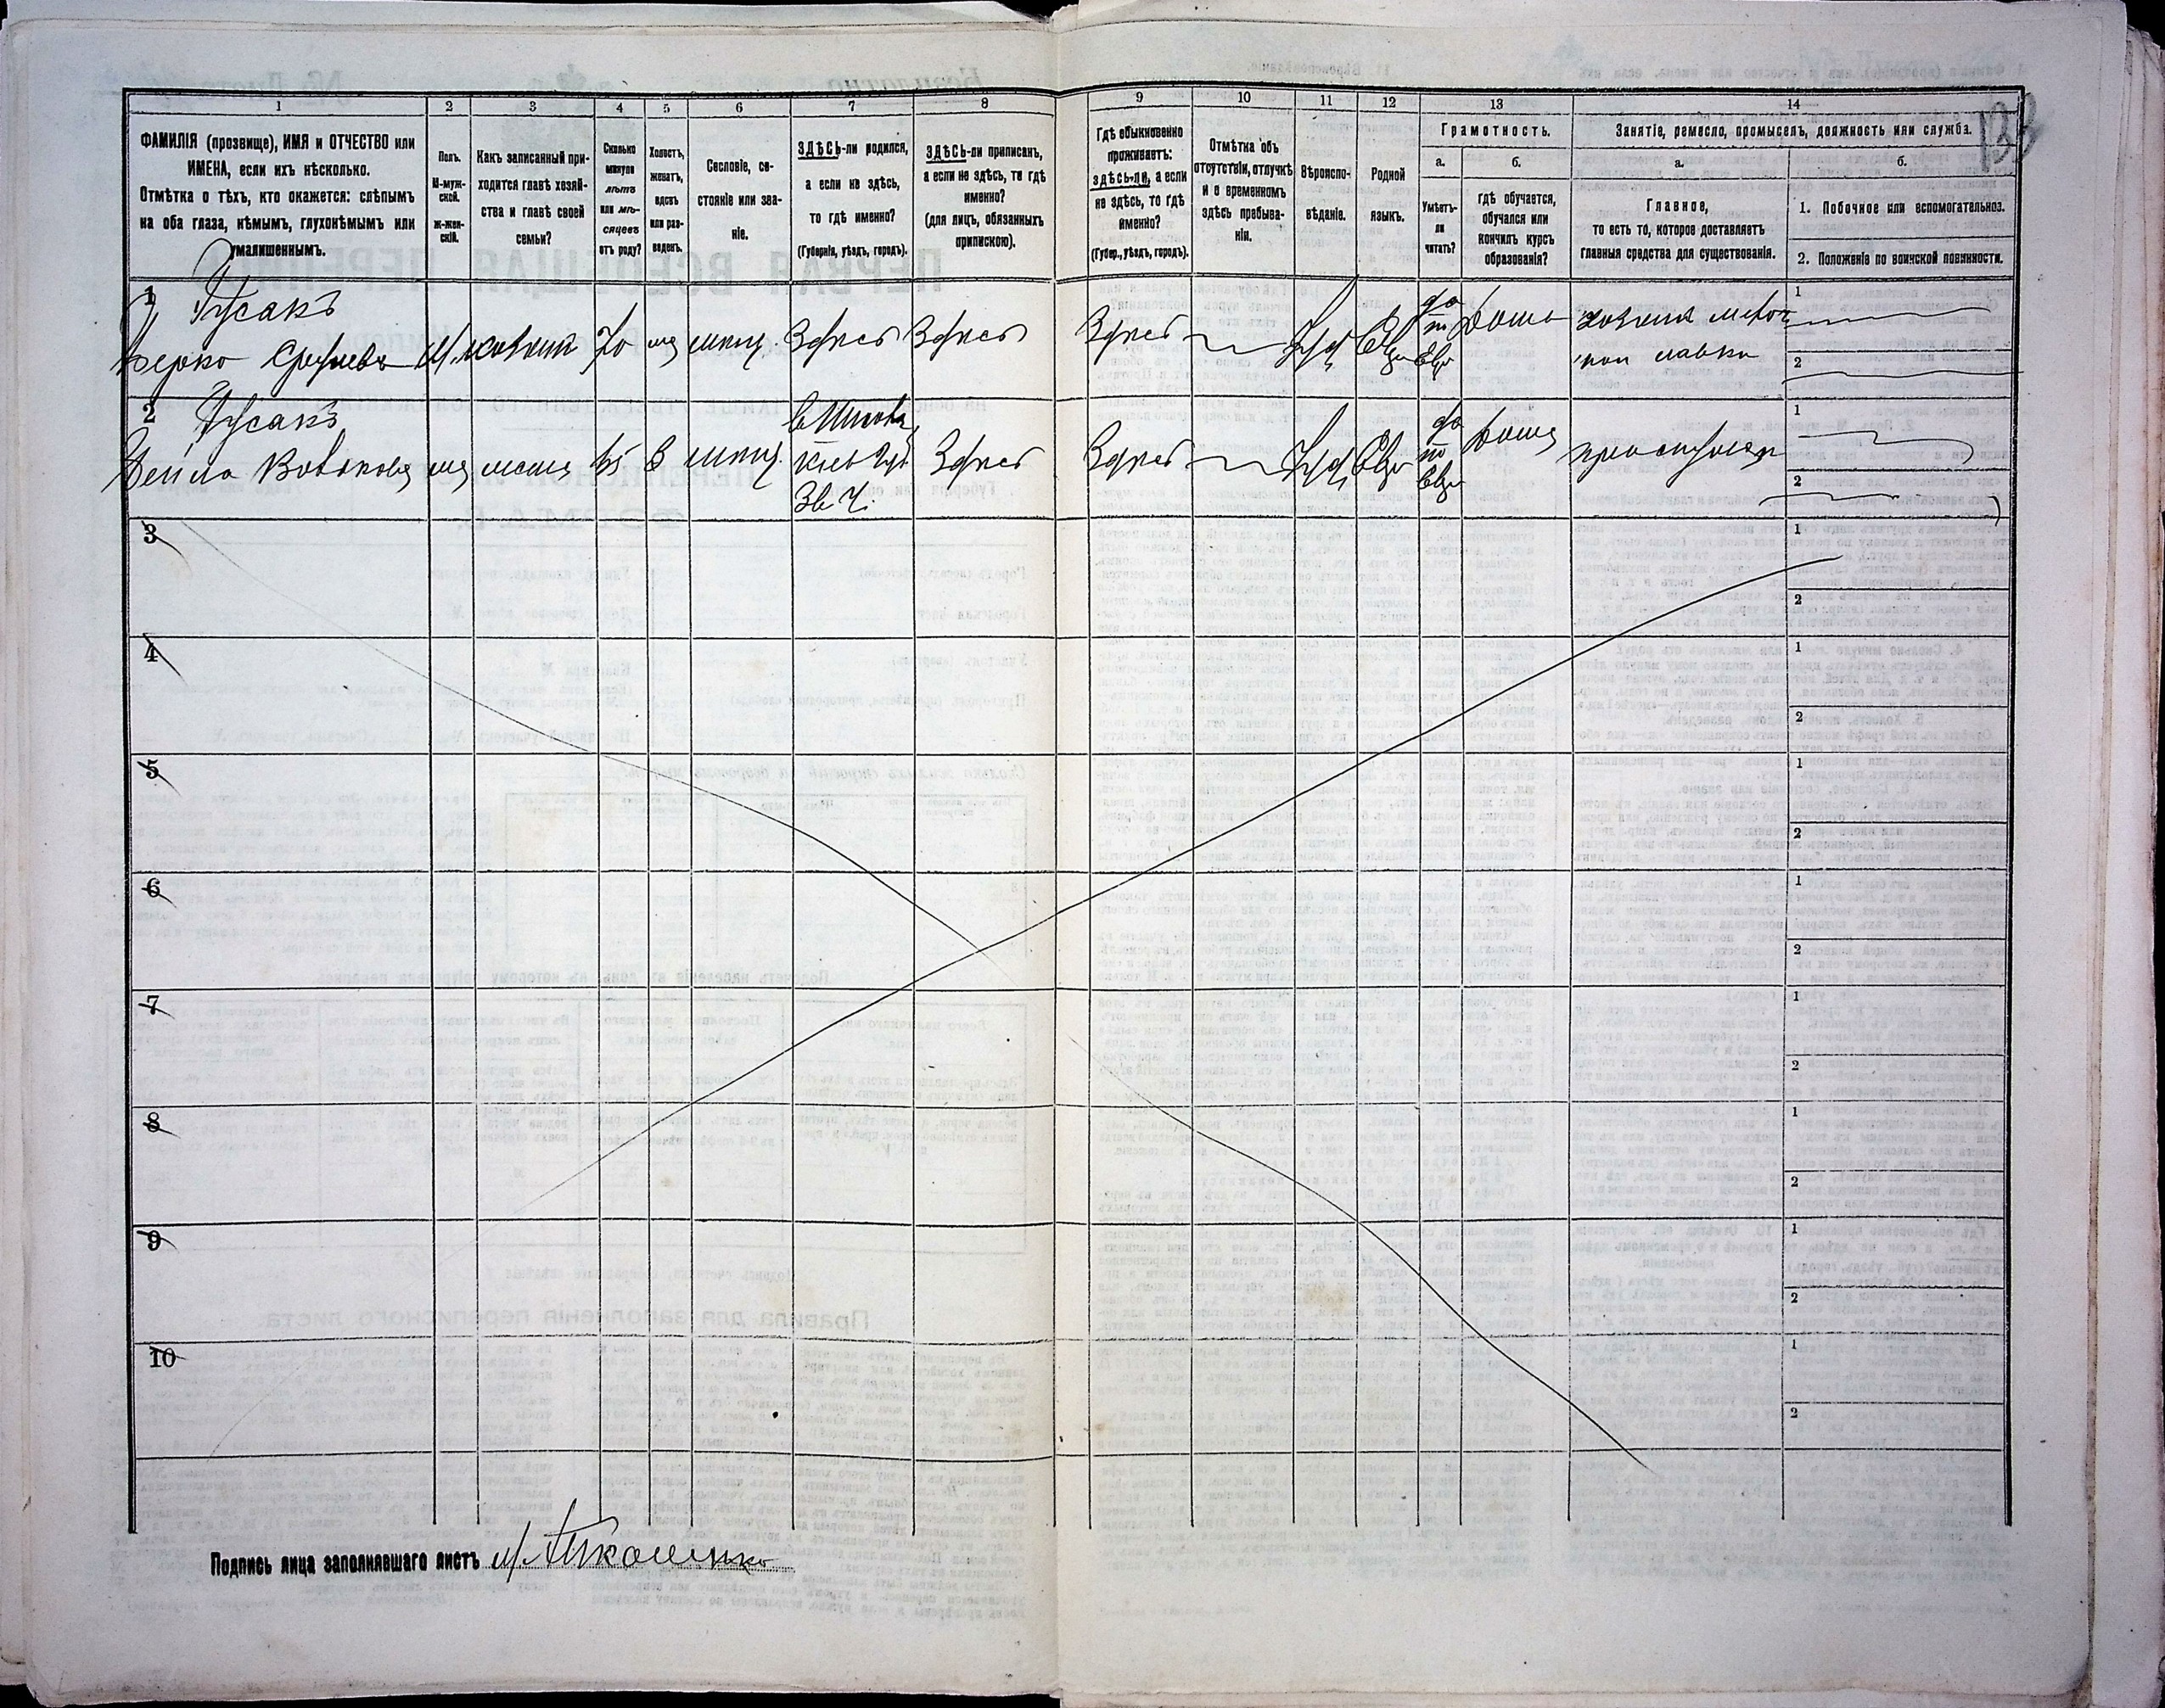 133
1
2
3
4
5
6
7
8
ФАМИЛІЯ (прозвище), ИМЯ и ОТЧЕСТВО или
ИМЕНА, если ихъ нѣсколько.
Отмѣтка о тѣхъ, кто окажется: слѣпымъ
на оба глаза, нѣмымъ, глухонѣмымъ или
умалишеннымъ.
Полъ.
М-муж-
ской.
Ж-жен-
скій.
Какъ записанный при-
ходится главѣ хозяй-
ства и главѣ своей
семьи?
Сколько
минуло
лѣтъ
или мѣ-
сяцевъ
отъ роду?
Холостъ,
женатъ,
вдовъ
или раз-
веденъ.
Сословіе, со-
стояніе или зва-
ніе.
ЗДѢСЬ-ли родился,
а если не здѣсь,
то гдѣ именно?
(Губернія, уѣздъ, городъ).
ЗДѢСЬ-ли приписанъ,
а если не здѣсь, то гдѣ
именно?
(для лицъ, обязанныхъ
припискою).
9
10
11
12
13
14
Гдѣ обыкновенно
проживаетъ:
здѣсь-ли, а если
не здѣсь, то гдѣ
именно?
(Губер., уѣздъ, городъ).
Отмѣтка объ
отсутствіи, отлучкѣ
и о временномъ
здѣсь пребыва-
ніи.
Вѣроиспо-
вѣданіе.
Родной
языкъ.
Грамотность.
а.
Умѣетъ-
ли
читать?
б.
гдѣ обучается,
обучался или
кончилъ курсъ
образованія?
Занятіе, ремесло, промыселъ, должность или служба.
а.
Главное,
то есть то, которое доставляетъ
главныя средства для существованія.
б.
1. Побочное или вспомогательное.
2. Положеніе по воинской повинности.
1
Гусакъ
Берко
М
хозяинъ
70
мѣщ.
Здѣсь
Здѣсь
Здѣсь
Іуд
Евр
да
по
Евр
дома
хозяинъ мелоч
ной лавки
1
2
2
Гусакъ
65
В
мѣщ.
Кіев. губ.
Зв. у.
Здѣсь
Здѣсь
Іуд
Евр
да
по
Евр
дома
1
2
3
1
2
4
1
2
5
1
2
6
1
2
7
1
2
8
1
2
9
1
2
10
1
2
Подпись лица заполнявшаго листъ